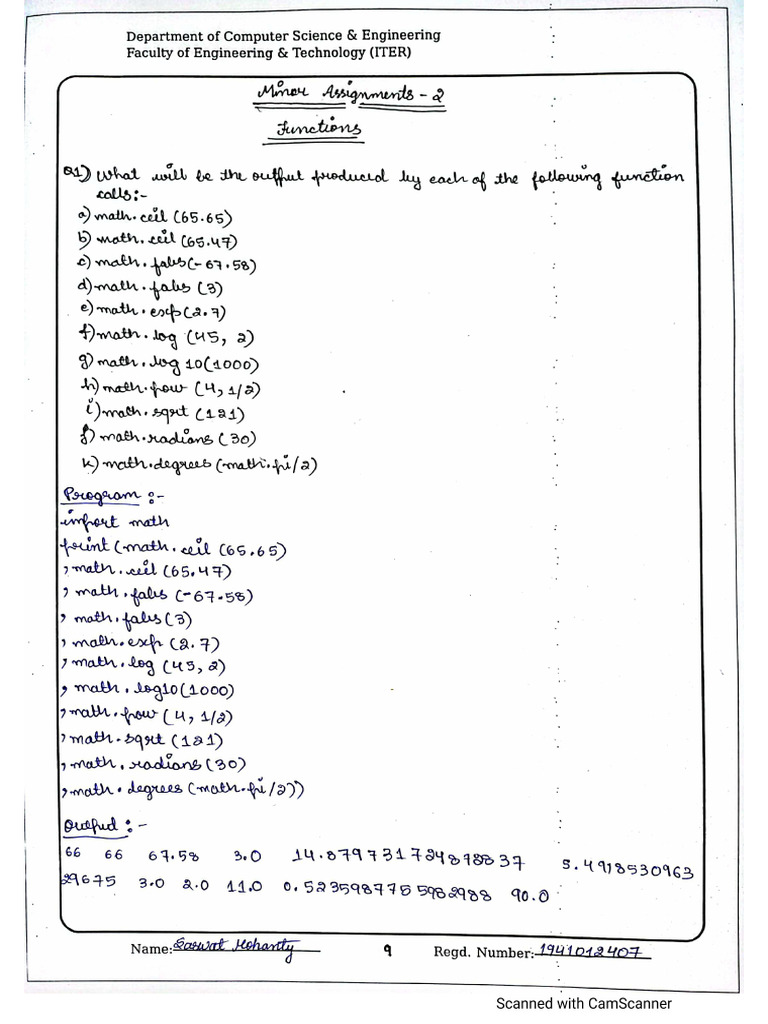 Department of Computer Science & Engineering
Faculty of Engineering & Technology (ITER)
Minor Assignments - 2
Functions
Q1) What will be the output produced by each of the following function
calls:-
a) math.ceil (65.65)
b) math.ceil (65.47)
c) math.fabs(-67.58)
d) math.fabs (3)
e) math.exp(2.7)
f) math.log (45, 2)
g) math.log 10(1000)
h) math.pow (4, 1/2)
i) math.sqrt (121)
j) math.radians (30)
k) math.degrees (math.pi/2)
Program :-
import math
print (math.ceil (65.65)
, math.ceil (65.47)
, math.fabs (-67.58)
, math.fabs (3)
, math.exp (2.7)
, math.log (45, 2)
, math.log10(1000)
, math.pow (4, 1/2)
, math.sqrt (121)
, math.radians (30)
, math.degrees (math.pi/2))
Output :-
66 66 67.58 3.0 14.87973172487283 7 5.4918530963
29675 3.0 2.0 11.0 0.5235987755982988 90.0
Name: Saswat Mohanty 9 Regd. Number: 1941012407
Scanned with CamScanner